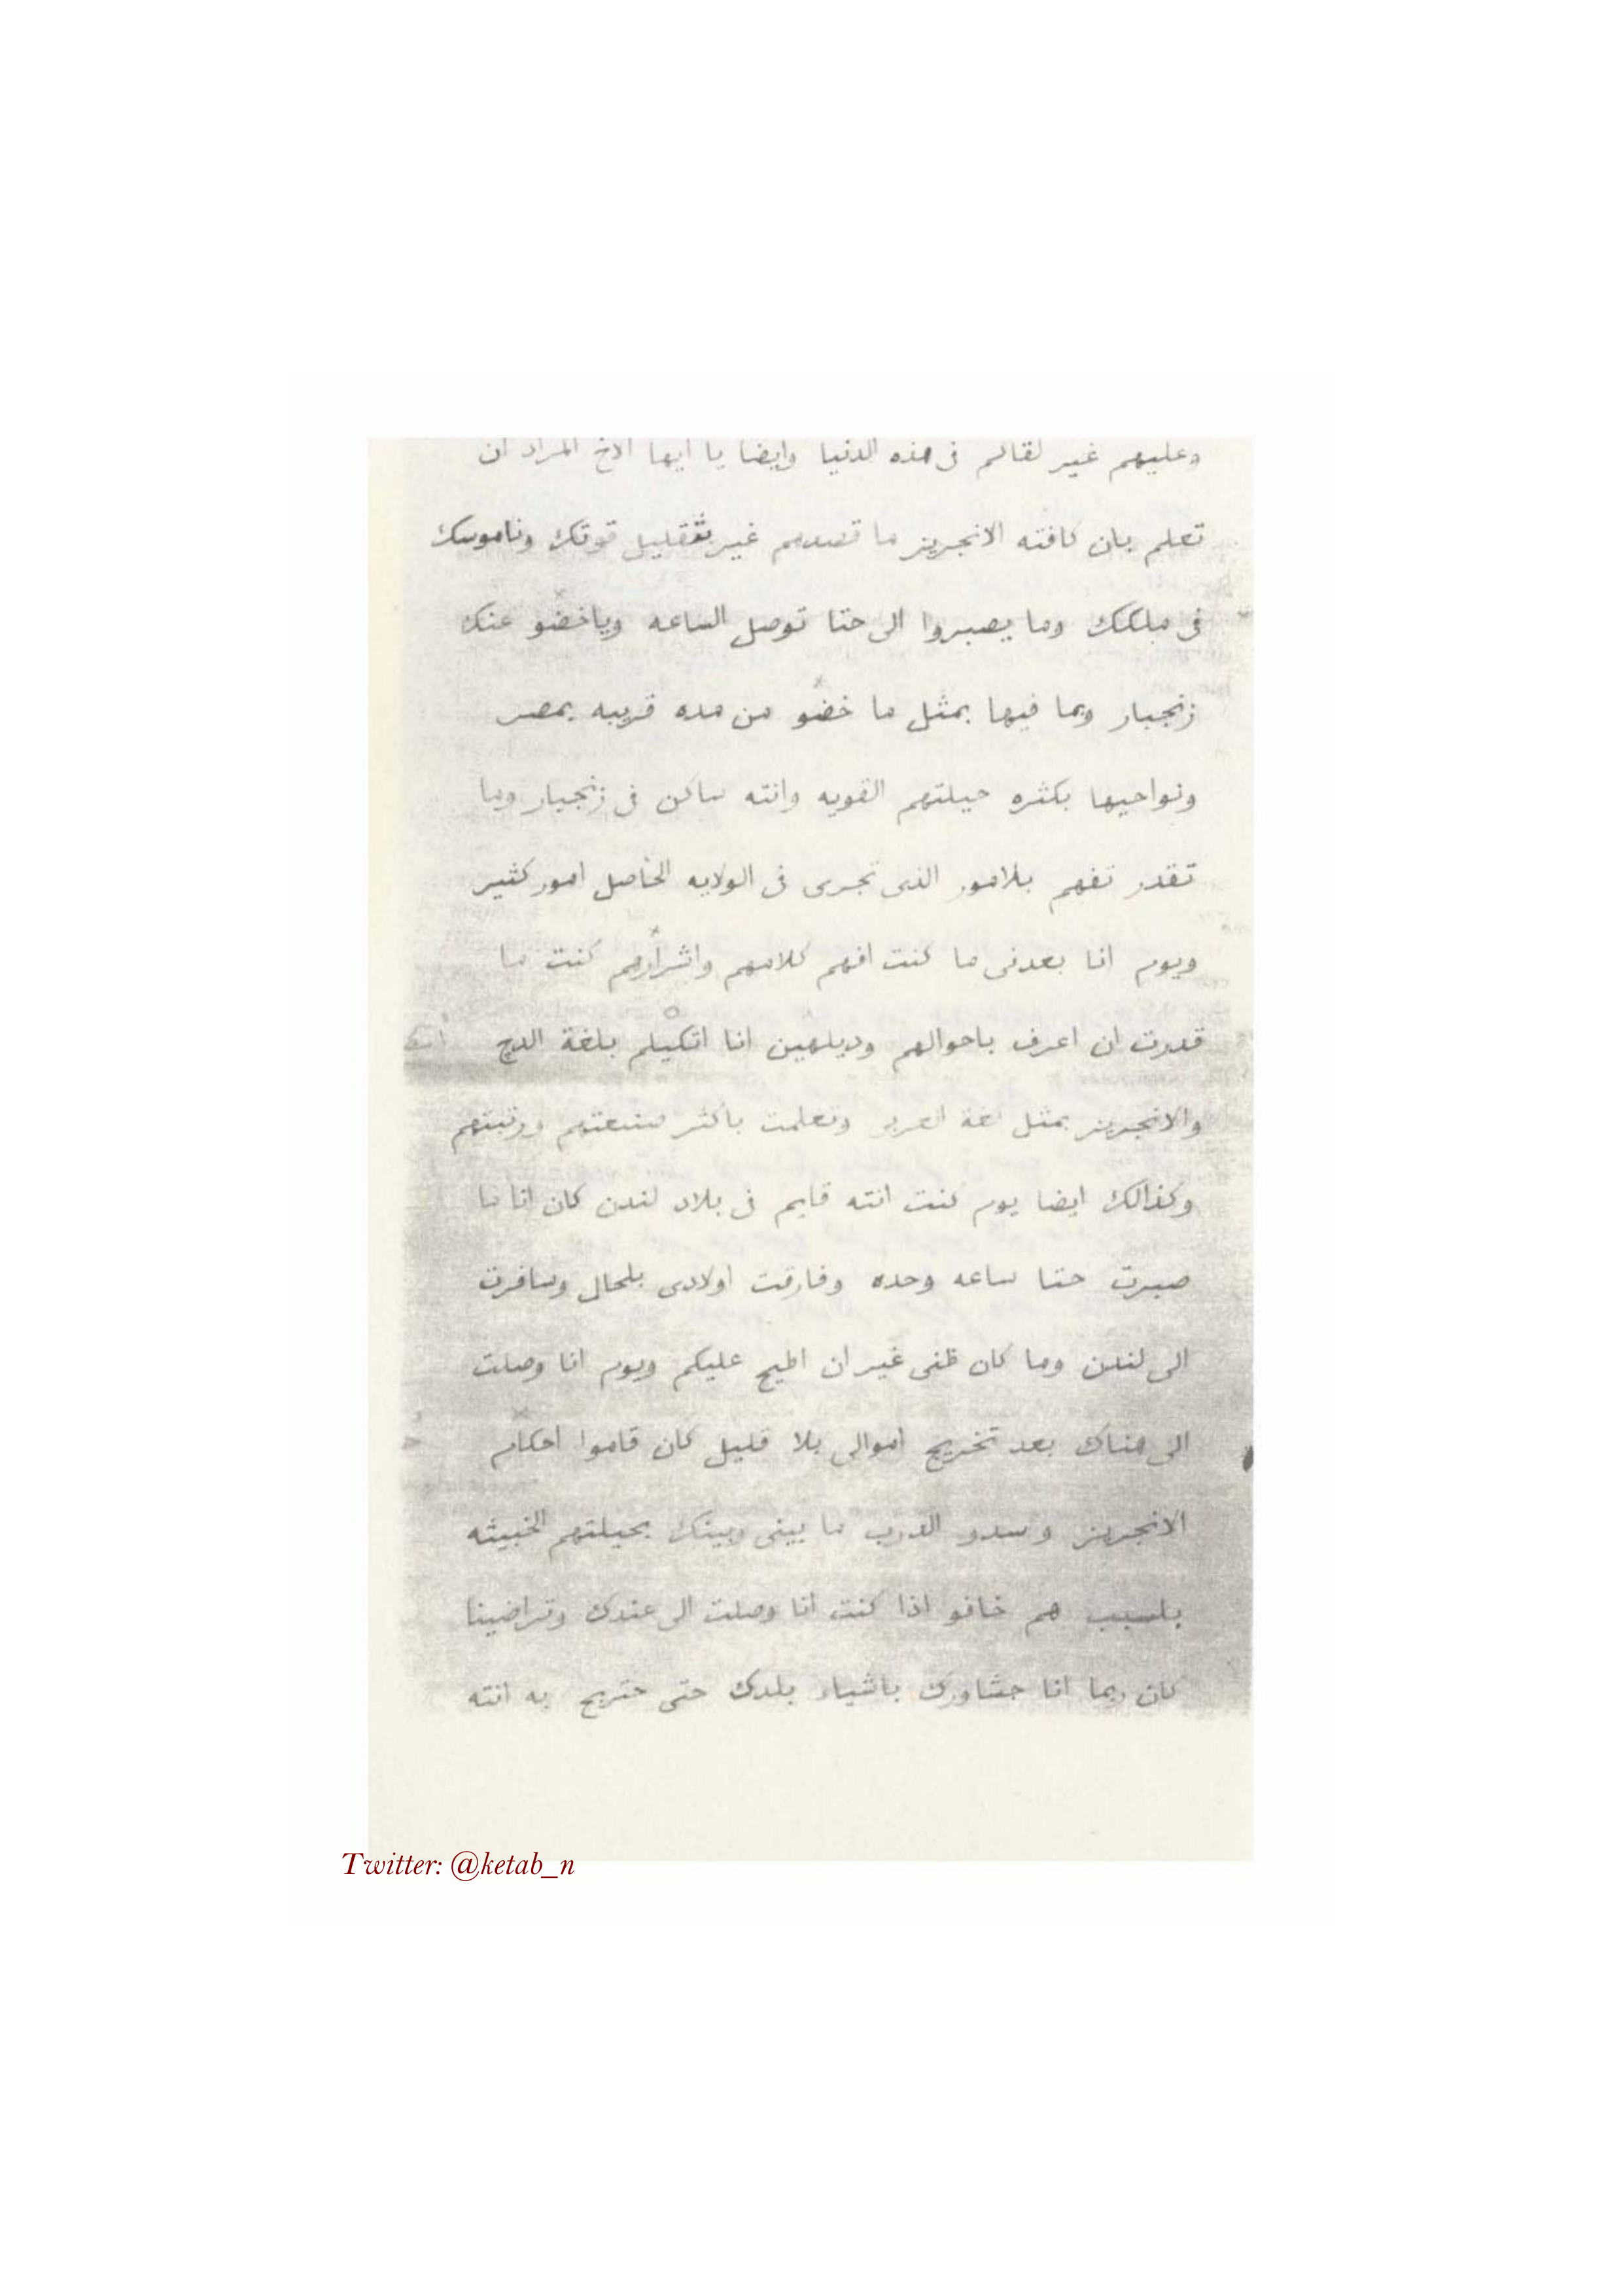 وعليهم غير لقالم فى هذه الدنيا وايضا يا ايها الاخ المراد ان
تعلم بان كافته الانجريز ما قصدهم غير بتقليل قوتك وناموسك
فى ملكك وما يصبروا الى حتا توصل الساعه وياخضو عنك
زنجبار وبما فيها بمثل ما خضو من مده قريبه بمصر
ونواحيها بكثره حيلتهم القويه وانته ساكن فى زنجبار وما
تقدر تفهم بلامور الذى تجرى فى الولايه الحاصل امور كثير
ويوم انا بعدنى ما كنت افهم كلامهم واشرارهم كنت ما
قدرت ان اعرف باحوالهم وديلهين انا اتكيلم بلغة الدج
والانجريز بمثل لغة العربى وتعلمت باكثر صنعتهم ورتبتهم
وكذالك ايضا يوم كنت انته قايم فى بلاد لندن كان انا ما
صبرت حتا ساعه وحده وفارقت اولادى بلحال وسافرت
الى لندن وما كان ظنى غير ان اطيح عليكم ويوم انا وصلت
الى هناك بعد تخريج اموالى بلا قليل كان قاموا احكام
الانجريز وسدو الدرب ما بينى وبينك بحيلتهم الخبيثه
بلسبب هم خافو اذا كنت انا وصلت الى عندك وتراضينا
كان ربما انا حشاورك باشياء بلدك حتى حتربح به انته
Twitter: @ketab_n